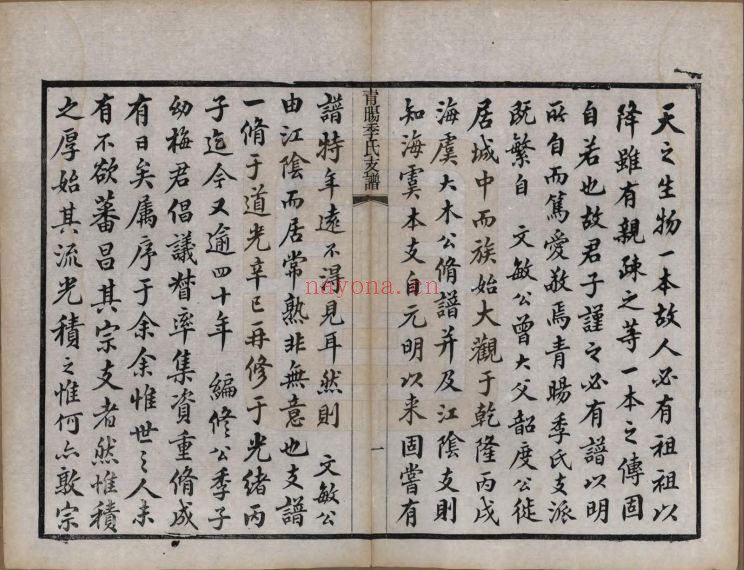 天之生物一本故人必有祖祖以
降雖有親疎之等一本之傳固
自若也故君子謹之必有譜以明
所自而篤愛敬焉青暘季氏支派
既繁自 文敏公曾大父韶度公徙
居城中而族始大觀于乾隆丙戌
海虞大木公脩譜并及江陰支則
知海虞本支自元明以来固嘗有
青暘季氏支譜
一
譜特年遠不得見耳然則 文敏公
由江陰而居常熟非無意也支譜
一脩于道光辛巳再修于光緒丙
子迄今又逾四十年 編修公季子
幼梅君倡議督率集資重脩成
有日矣属序于余余惟世之人未
有不欲蕃昌其宗支者然惟積
之厚始其流光積之惟何亦敦宗
nayona.cn